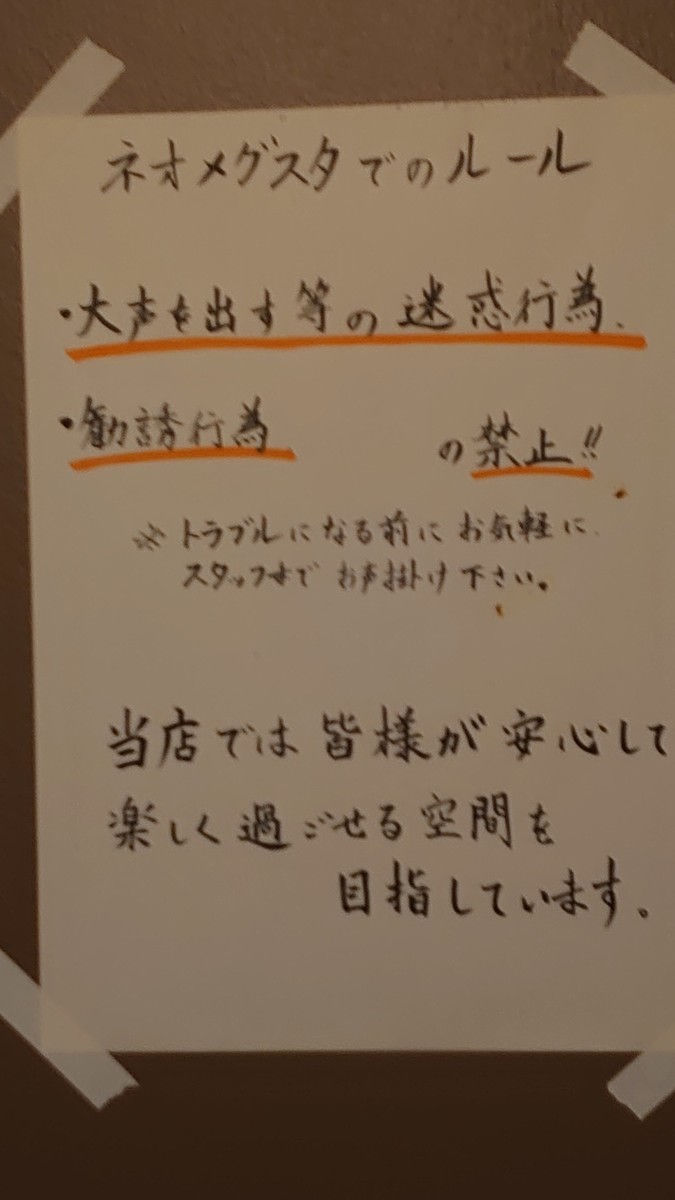 ネオメグスタでのルール
・大声を出す等の迷惑行為、
・勧誘行為 の禁止!!
※トラブルになる前にお気軽に
スタッフまでお声掛け下さい。
当店では皆様が安心して
楽しく過ごせる空間を
目指しています。